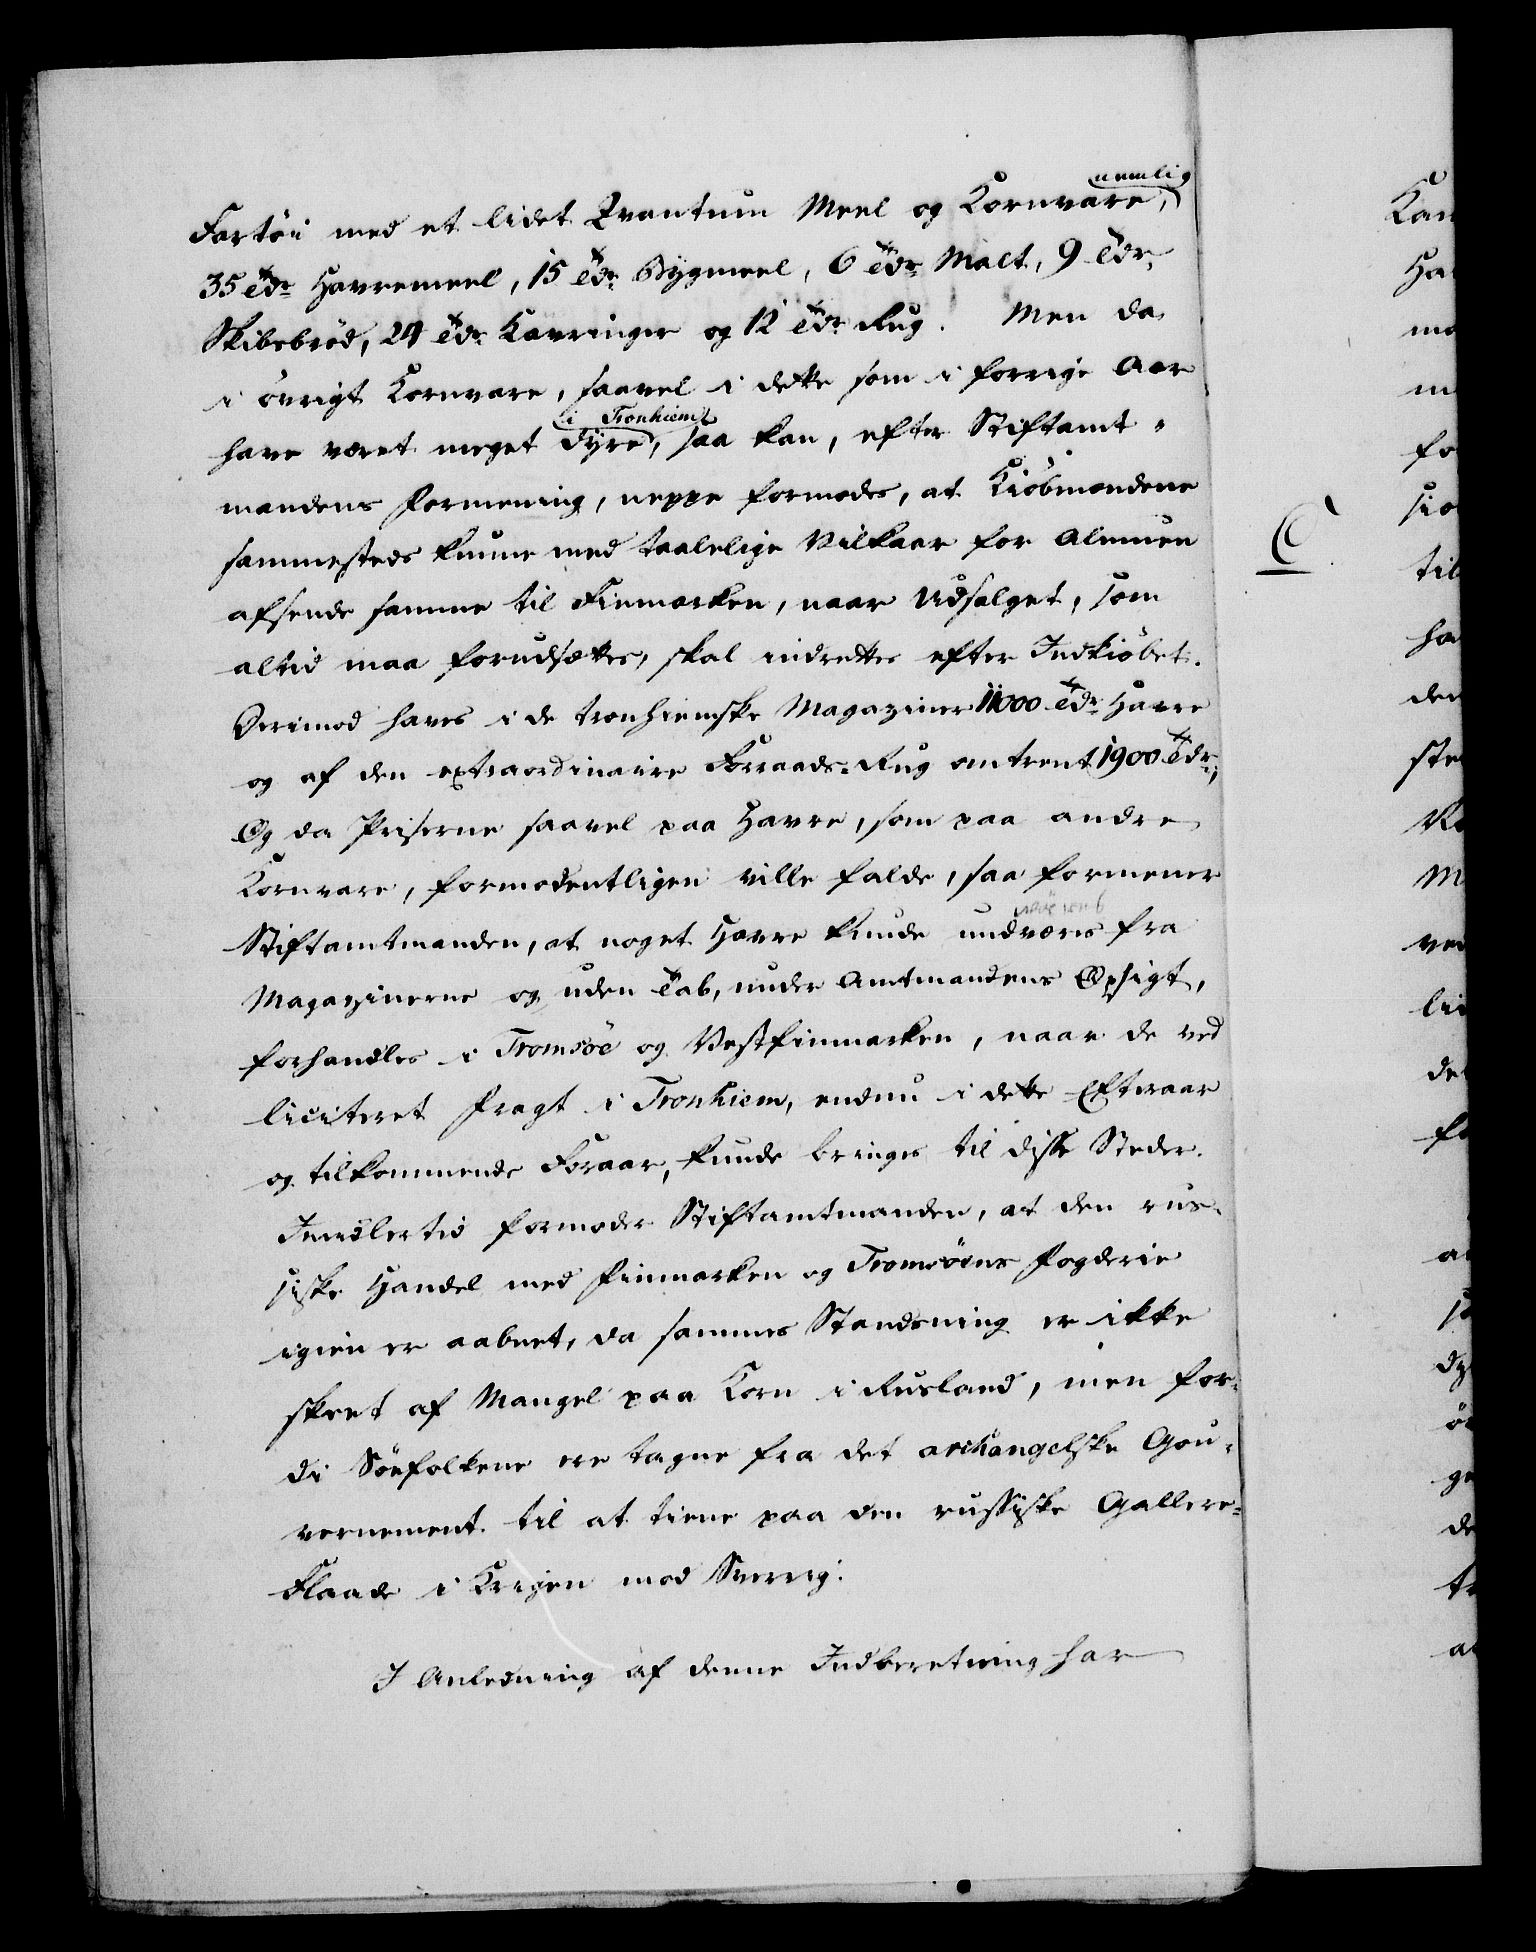 Fartöi med et lidet Qvantum Meel og Kornvare, nemlig
35 Tdr Havremeel, 15 Tdr Bygmeel, 6 Tdr Malt, 9 Tdr
Skibsbröd, 24 Tdr Kavringer og 12 Tdr Rug. Men da
i övrigt Kornvare, saavel i dette som i forrige Aar
i Tronhiem
have været meget dyre, saa kan, efter Stiftamt-
mandens Formening, neppe formodes, at Kiöbmændene
sammesteds kunne med taalelige Vilkaar for Almuen
afsende samme til Finmarken, naar Udsalget, som
altid maa forudsættes, skal indrettes efter Indkiöbet.
Derimod haves i de tronhiemske Magaziner 11000 Tdr Havre
og af den extraordinaire Forraads-Rug omtrent 1900 Tdr;
Og da Priserne saavel paa Havre, som paa andre
Kornvare, formodentligen ville falde, saa formener
Stiftamtmanden, at noget Havre kunde undværes fra
Magazinerne og uden Tab, under Amtmandens Opsigt,
forhandles i Tromsöe og Vestfinmarken, naar de ved
liciteret Fragt i Tronhiem, endnu i dette Efteraar
og tilkommende Foraar, kunde bringes til disse Steder.
Imidlertid formoder Stiftamtmanden, at den rus-
siske Handel med Finmarken og Tromsöens Fogderie
igien er aabnet, da sammes Standsning er ikke
skeet af Mangel paa Korn i Rusland, men for-
di Söefolkene ere tagne fra det archangelske Gou-
vernement til at tiene paa den russiske Gallere-
Flaade i Krigen mod Sverrig.
I Anledning af denne Indberetning har